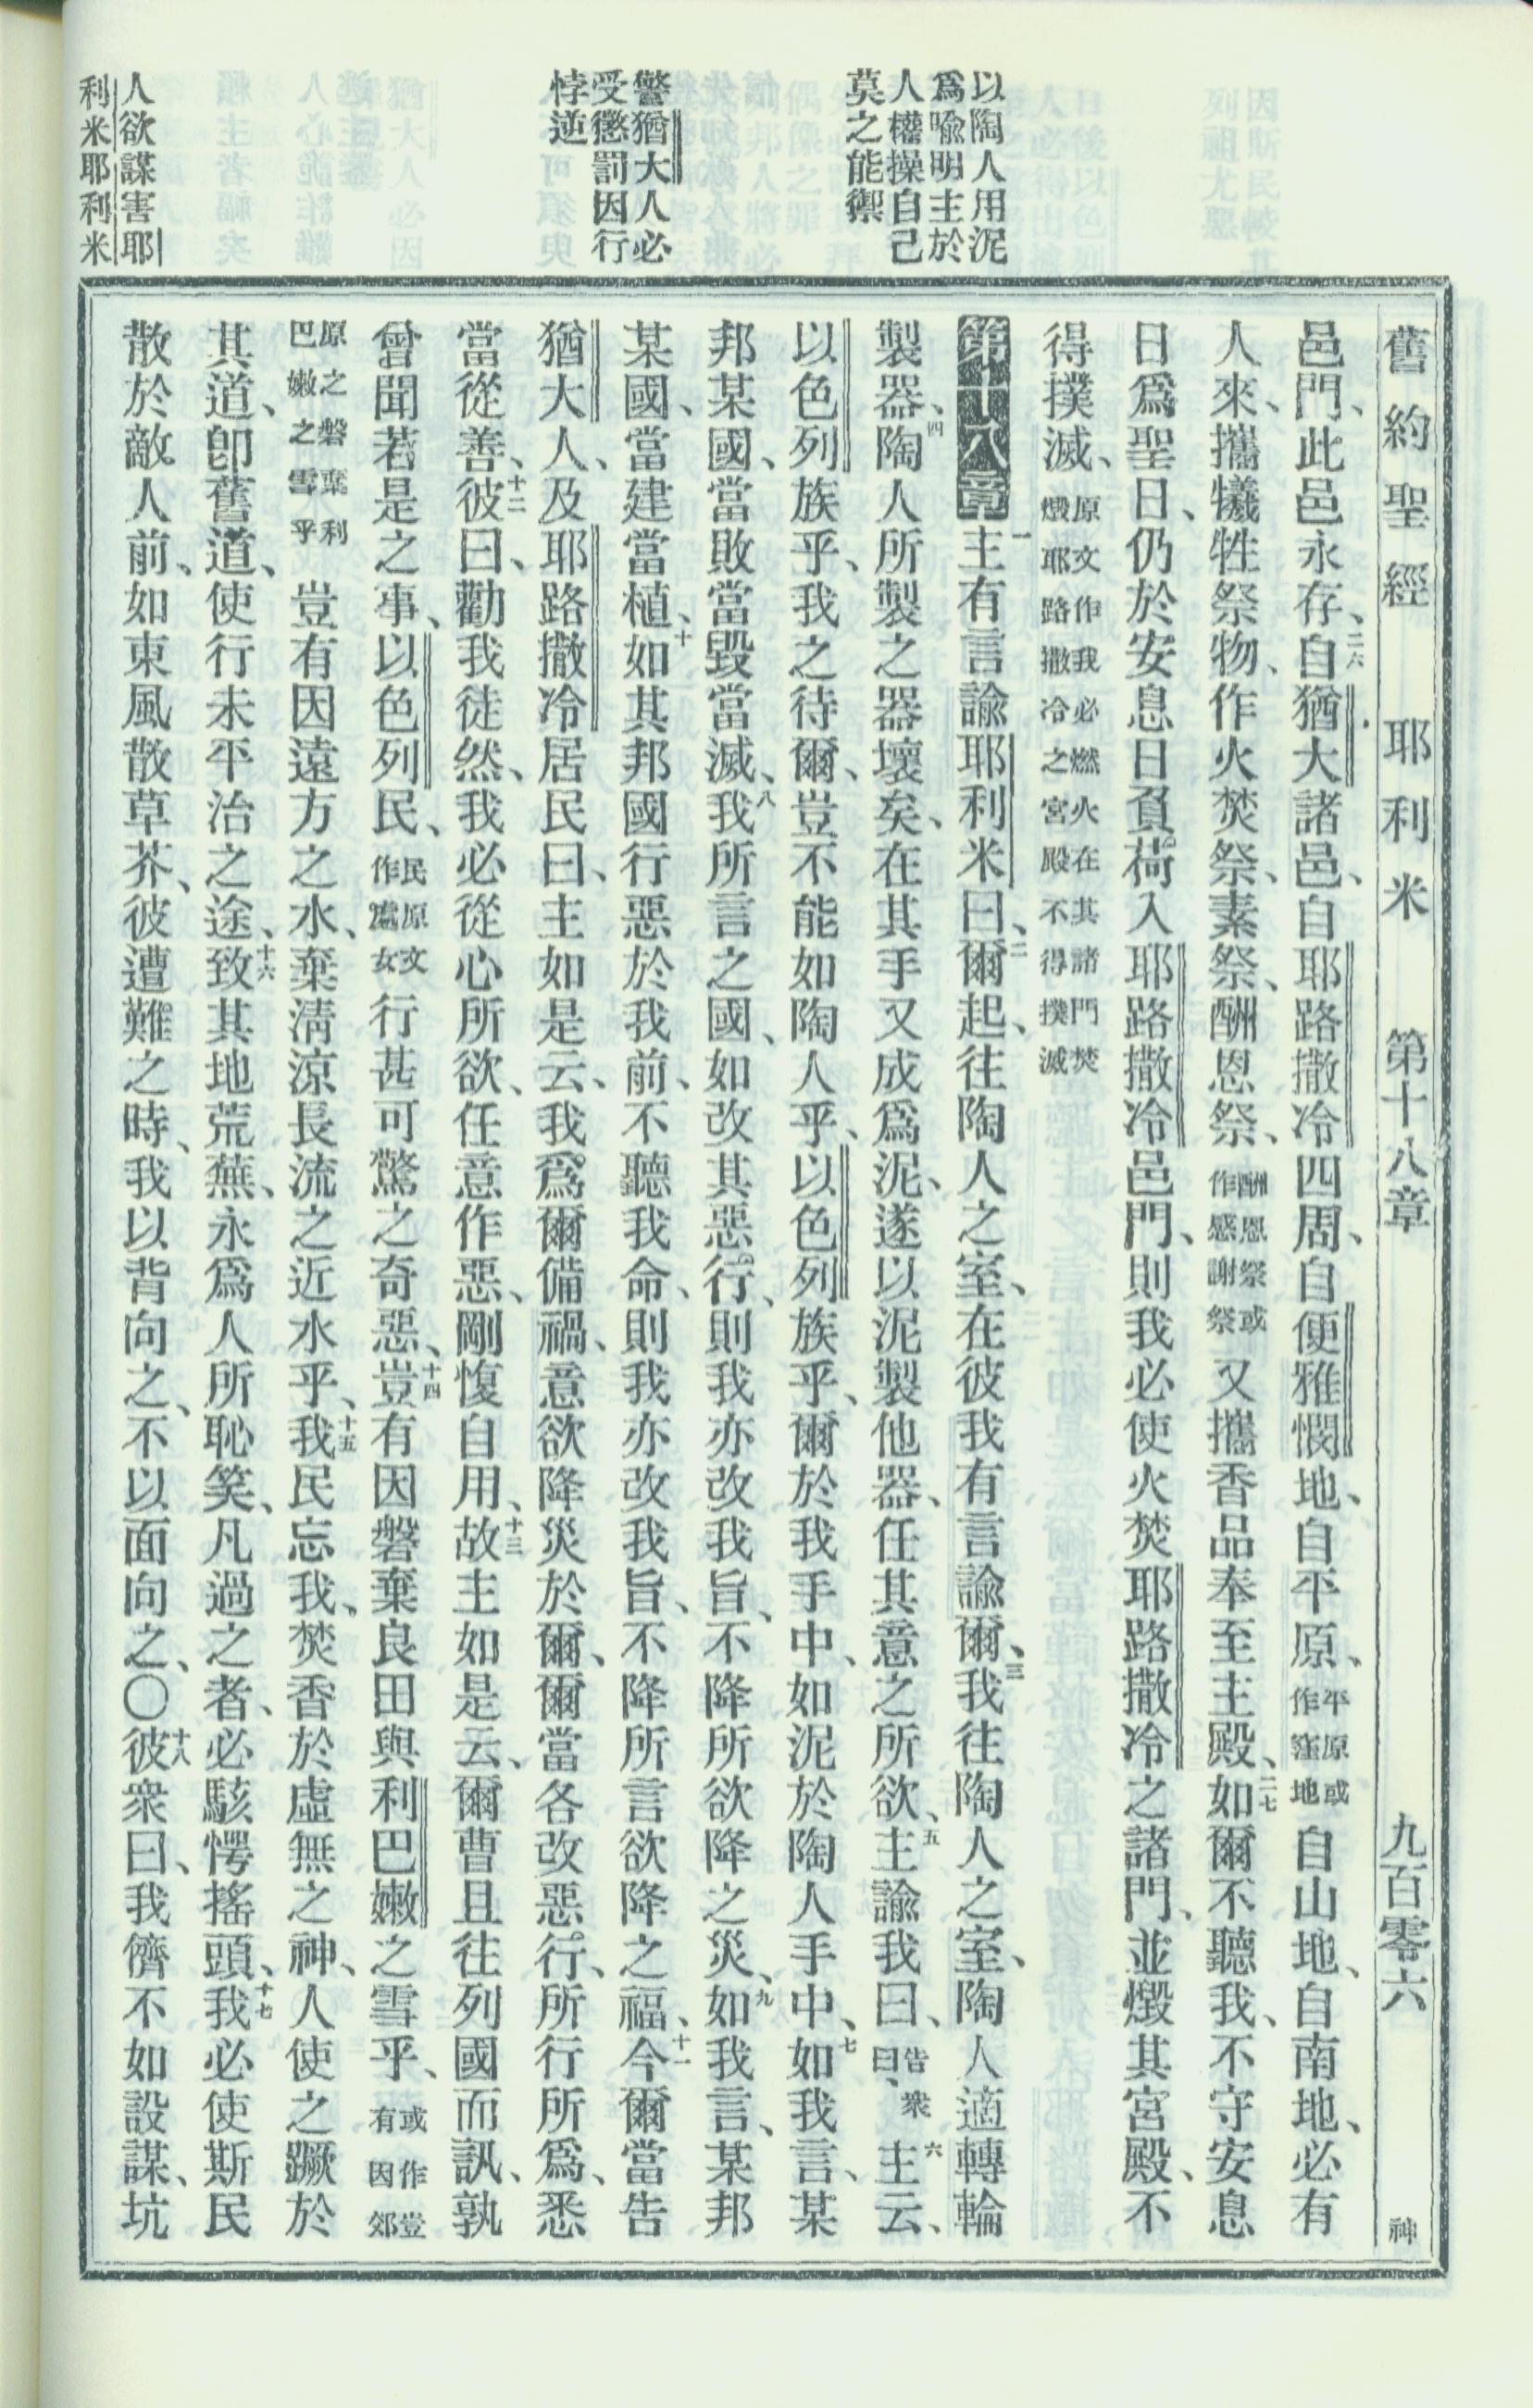 舊約聖經 耶利米 第十八章 九百零六 神
以陶人用泥
爲喩明主於
人權操自己
莫之能禦
警猶大人必
受懲罰因行
悖逆
人欲謀害耶
利米耶利米
邑門、此邑永存、二六自猶大諸邑、自耶路撒冷四周、自便雅憫地、自平原、平原或作窪地自山地、自南地、必有
人來、攜犧牲祭物、作火焚祭、素祭、酬恩祭、酬恩祭或作感謝祭又攜香品奉至主殿、二七如爾不聽我、不守安息
日爲聖日、仍於安息日負荷入耶路撒冷邑門、則我必使火焚耶路撒冷之諸門、並燬其宮殿、不
得撲滅、原文作我必燃火在其諸門焚燬耶路撒冷之宮殿不得撲滅
第十八章一主有言諭耶利米曰、二爾起、往陶人之室、在彼我有言諭爾、三我往陶人之室、陶人適轉輪
製器、四陶人所製之器壞矣、在其手又成爲泥、遂以泥製他器、任其意之所欲、五主諭我曰、告衆曰、六主云、
以色列族乎、我之待爾、豈不能如陶人乎、以色列族乎、爾於我手中、如泥於陶人手中、七如我言、某
邦某國、當敗當毀當滅、八我所言之國、如改其惡行、則我亦改我旨、不降所欲降之災、九如我言、某邦
某國、當建當植、十如其邦國行惡於我前、不聽我命、則我亦改我旨、不降所言欲降之福、十一今爾當告
猶大人、及耶路撒冷居民曰、主如是云、我爲爾備禍、意欲降災於爾、爾當各改惡行、所行所爲、悉
當從善、十二彼曰、勸我徒然、我必從心所欲、任意作惡、剛愎自用、十三故主如是云、爾曹且往列國而訊、孰
曾聞若是之事、以色列民、民原文作處女行甚可驚之奇惡、十四豈有因磐棄良田與利巴嫩之雪乎、或作豈有因郊
原之磐棄利巴嫩之雪乎豈有因遠方之水、棄淸涼長流之近水乎、十五我民忘我、焚香於虛無之神、人使之蹶於
其道、卽舊道、使行未平治之途、十六致其地荒蕪、永爲人所恥笑、凡過之者、必駭愕搖頭、十七我必使斯民
散於敵人前、如東風散草芥、彼遭難之時、我以背向之、不以面向之、〇十八彼衆曰、我儕不如設謀、坑